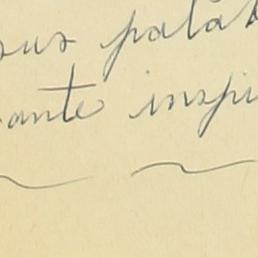 sus palab
ante inspi